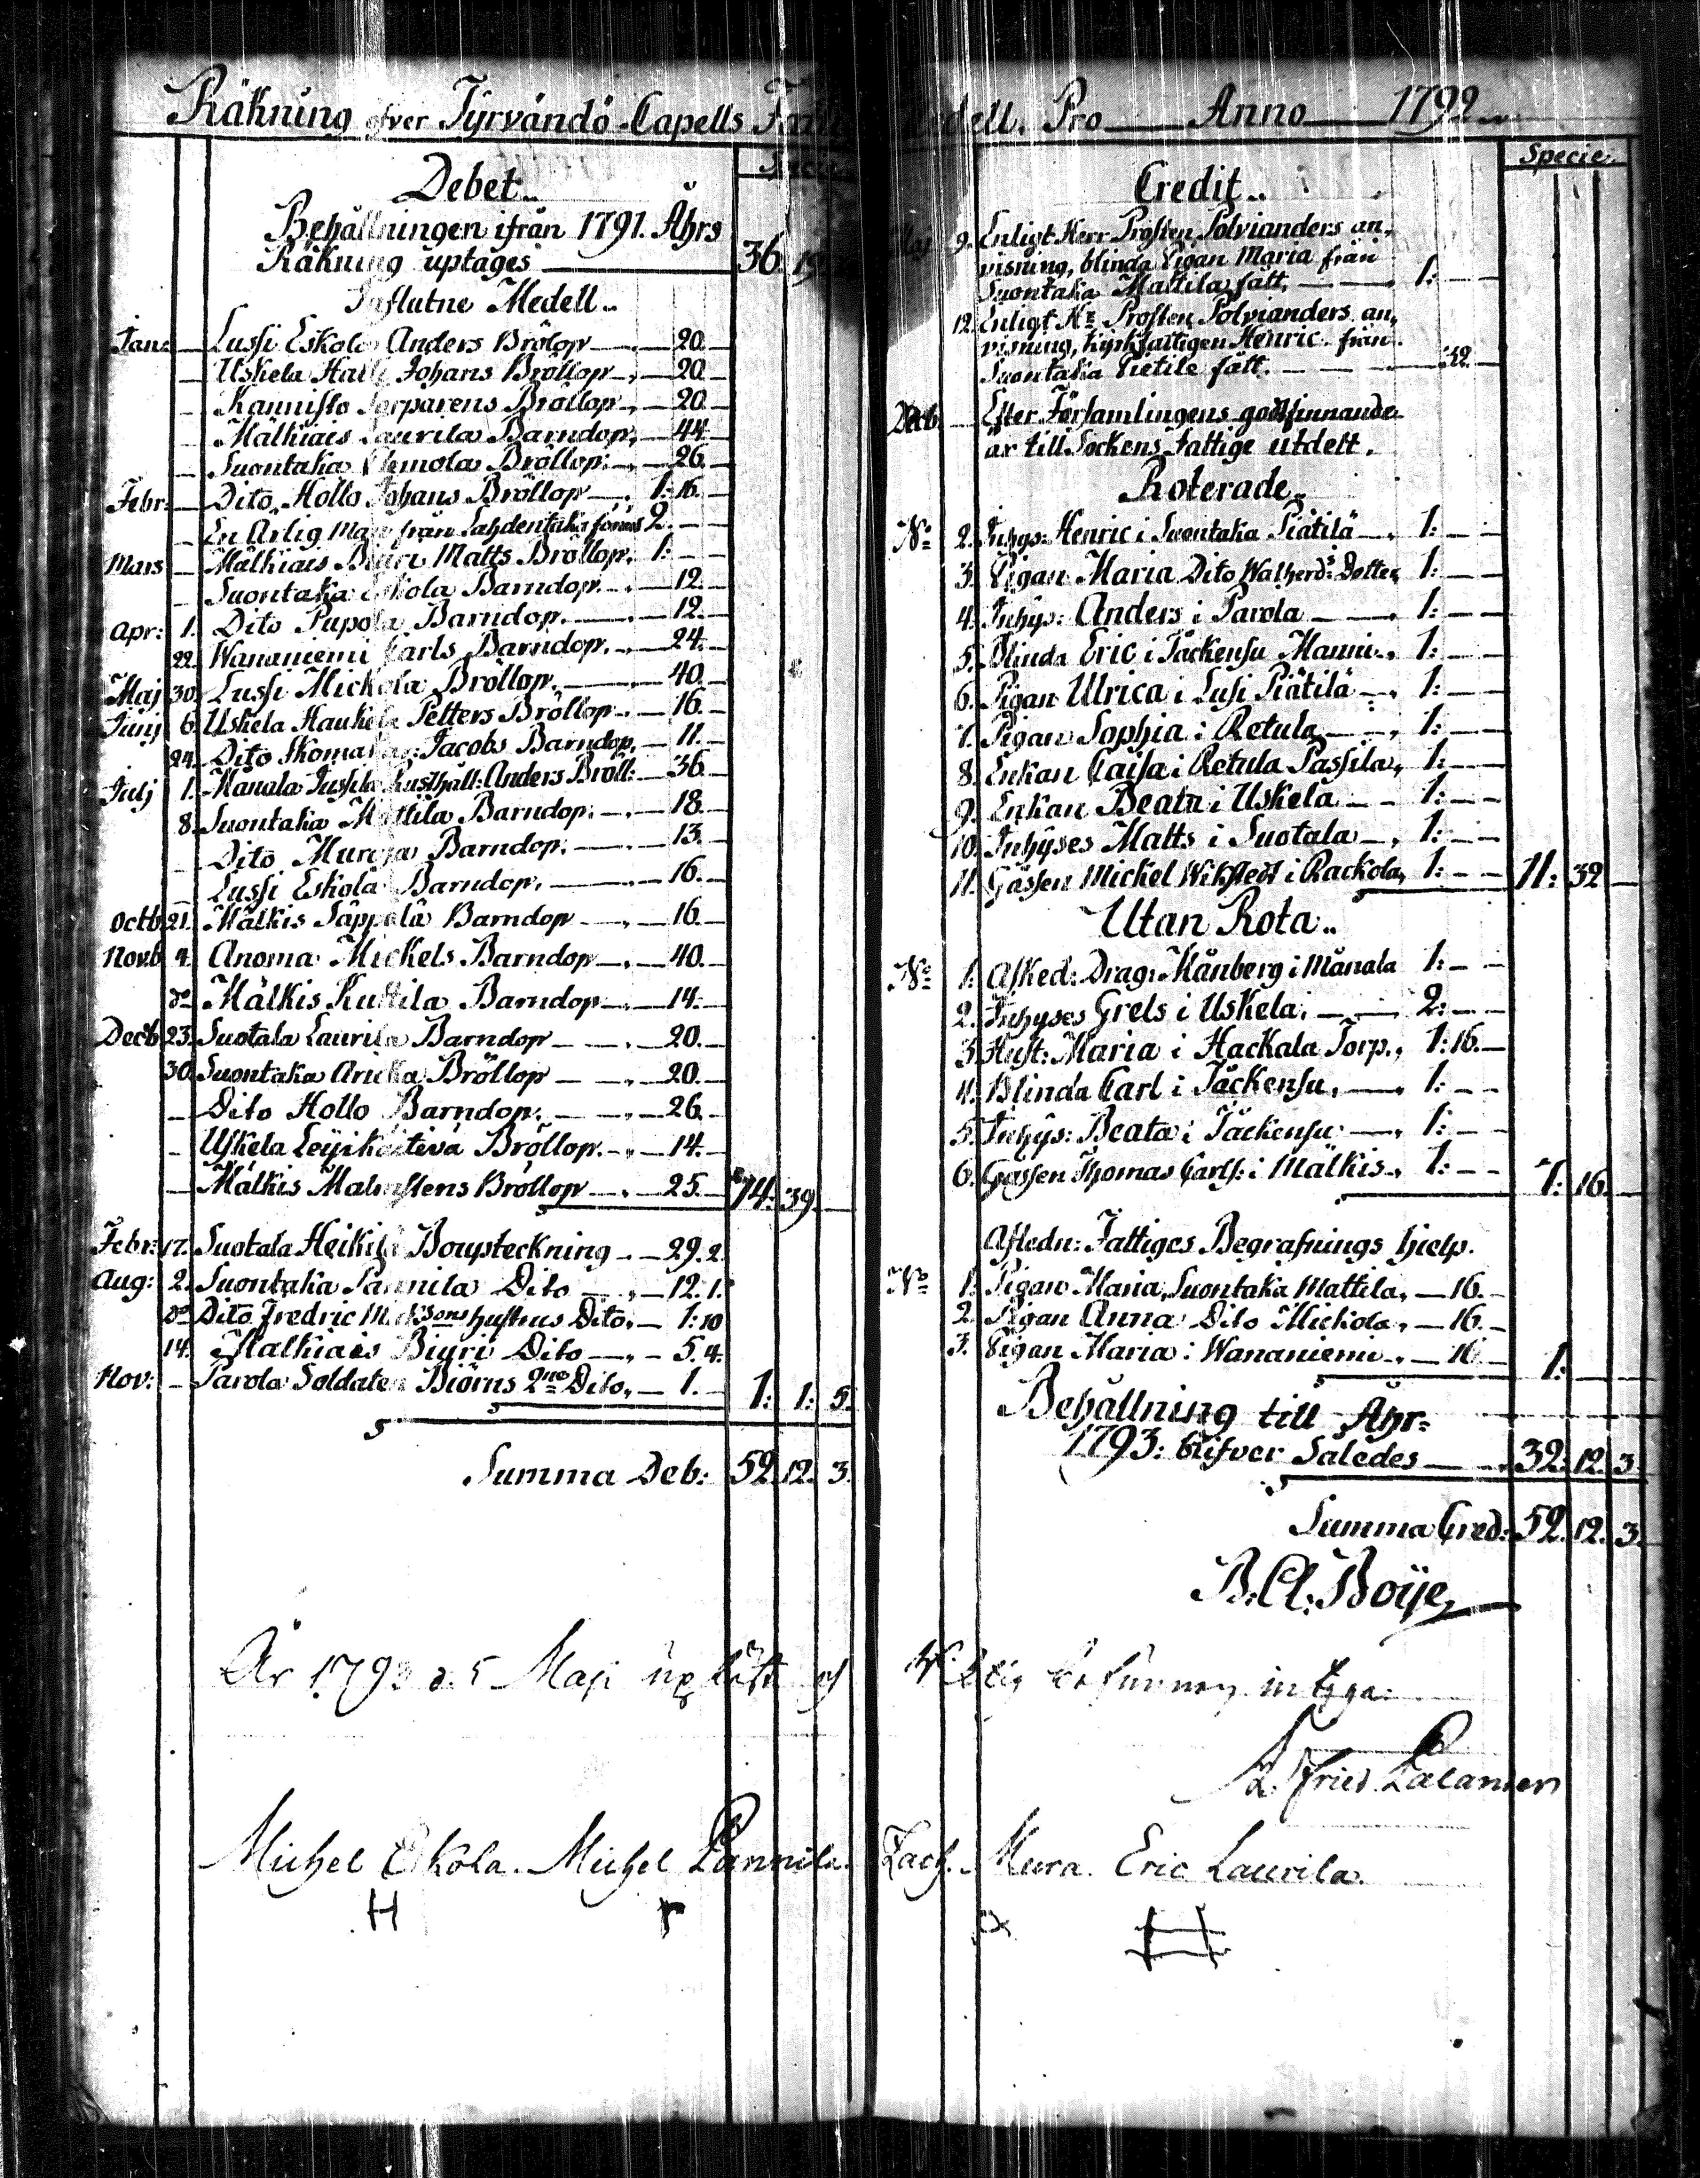 Räkning öfver Tyrvändö Capells Fatt medell. Pro Anno 1792
Debet
Behållningen ifrån 1791. Åhrs
Räkning uptages 36. 19
Influtne Medell
Jan: Lussi Eskola Anders Brölop 20.
Uskela Johans Bröllop 20
Kannisto Torparens Bröllop 20
Mälkiais Laurila Barndop 44
Suontaka Bröllop 26
Febr: Dito Hollo Johans Bröllop 1: 16.
En Ärlig Man från Lahdentaka 2.
Mars Mälkiais Matts Bröllop 1:
Suontaka Eskola Barndop 12
Apr: 1. Dito Pupola Barndop. 12.
22. Wananiemi Carls Barndop. 24.
Maj 30. Lussi Mickola Bröllop. 40.
Junj 6. Uskela Petters Bröllop. 16.
24. Dito Jacobs Barndop. 11.
Julj 1. Månala Jussila Rusthåll: Anders Bröll: 36.
8. Suontaka Mattila Barndop. 18
Dito Barndop. 13.
Lussi Eskola Barndop. 16.
Octb 21. Mälkis Säppälä Barndop 16.
Nov.b 4. Anoma Mickels Barndop 40.
do Mälkis Kuttila Barndop 14.
Decb 23. Suotala Laurila Barndop 20.
30. Suontaka Bröllop 20.
Dito Hollo Barndop. 26.
Uskela Bröllop. 14.
Mälkis Malmstens Bröllop 25. 14: 39
Febr: 17. Suotala Heikilä Boupteckning 29. 2.
Aug: 2. Suontaka Pannila Dito 12. 1.
do Dito Fredric hustrus Dito 1: 10
14. Mälkiais Dito 5. 4.
Nov: Parola Soldaten Biörns Dito 1. 1: 1: 5.
Summa Deb: 52. 12. 3.
År 1793 d. 5 Maji
Michel Eskola. Michel Pannila.
H
Specie
Credit
Maj 9. Enligt Herr Prosten Polvianders an,
visning, blinda Pigan Maria från
Suontaka Mattila fått, 1:
12. Enligt Hr Prosten Polvianders an,
visning, kyrkfattigen Henric från
Suontaka Pietile fått. 32.
Decb. Efter Församlingens godtfinnande
är till Sockens Fattige utdelt.
Roterade.
No 2. Inhys: Henric i Suontaka Piätilä 1:
3. Pigan Maria Dito Dotter 1:
4. Inhys: Anders i Parola 1:
5. Blinda Eric i Täckensu Manni 1:
6. Pigan Ulrica i Lusi Piätilä 1:
7. Pigan Sophia i Retula 1:
8. Enkan Caisa i Retula Passila 1:
9. Enkan Beata i Uskela 1:
10. Inhyses Matts i Suotala 1:
11. Gossen Michel Wikstedt i Rackola 1: 11: 32
Utan Rota
No 1. Afsked: Drag: Månberg i Månala 1:
2. Inhyses Grels i Uskela. 2:
3. Hust: Maria i Hackala Torp. 1: 16.
4. Blinda Carl i Täckensu 1:
5. Inhys: Beata i Täckensu 1:
6. Gossen Thomas Carls: i Mälkis 1: 7: 16.
Afledn: Fattiges Begrafnings hielp.
No 1. Pigan Maria, Suontaka Mattila 16.
2. Pigan Anna Dito Mickola 16.
3. Pigan Maria i Wananiemi 16 1:
Behållning till Åhr
1793: blifver Saledes 32: 12. 3
Summa Cred: 52. 12. 3.
B. A. Boije
befunnen intyga
Zach. Mura. Eric Laurila.